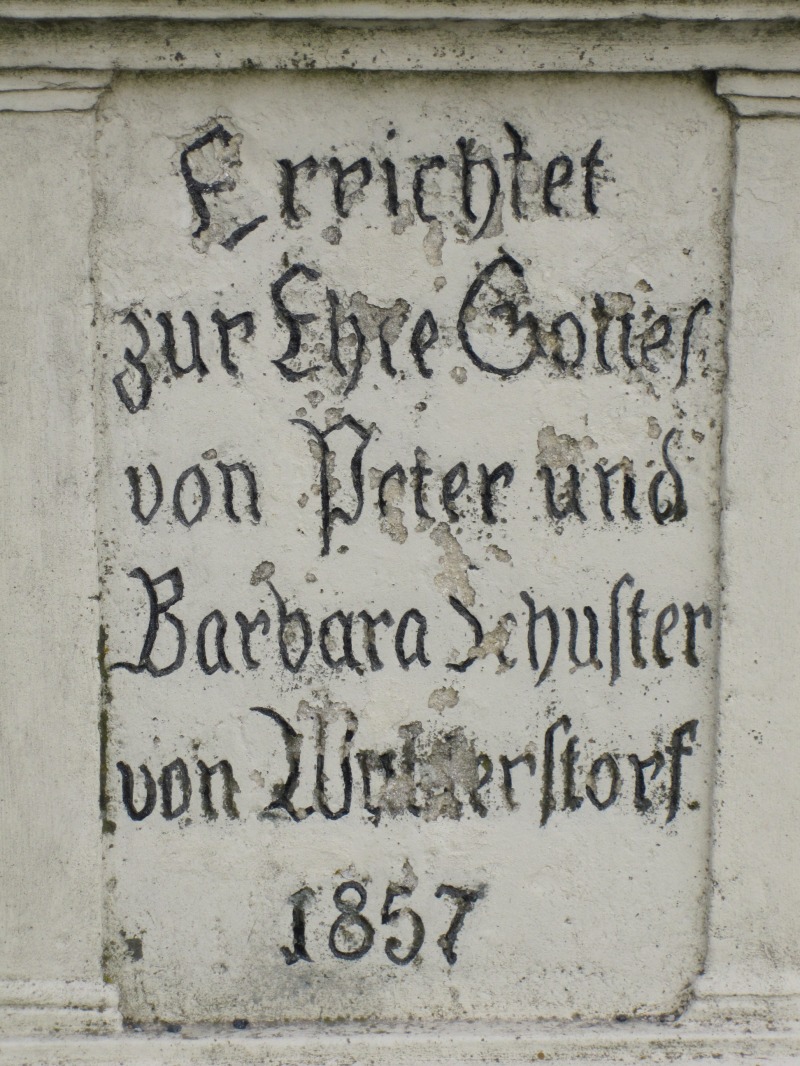 Errichtet
zur Ehre Gottes
von Peter und
Barbara Schuster
von
1857